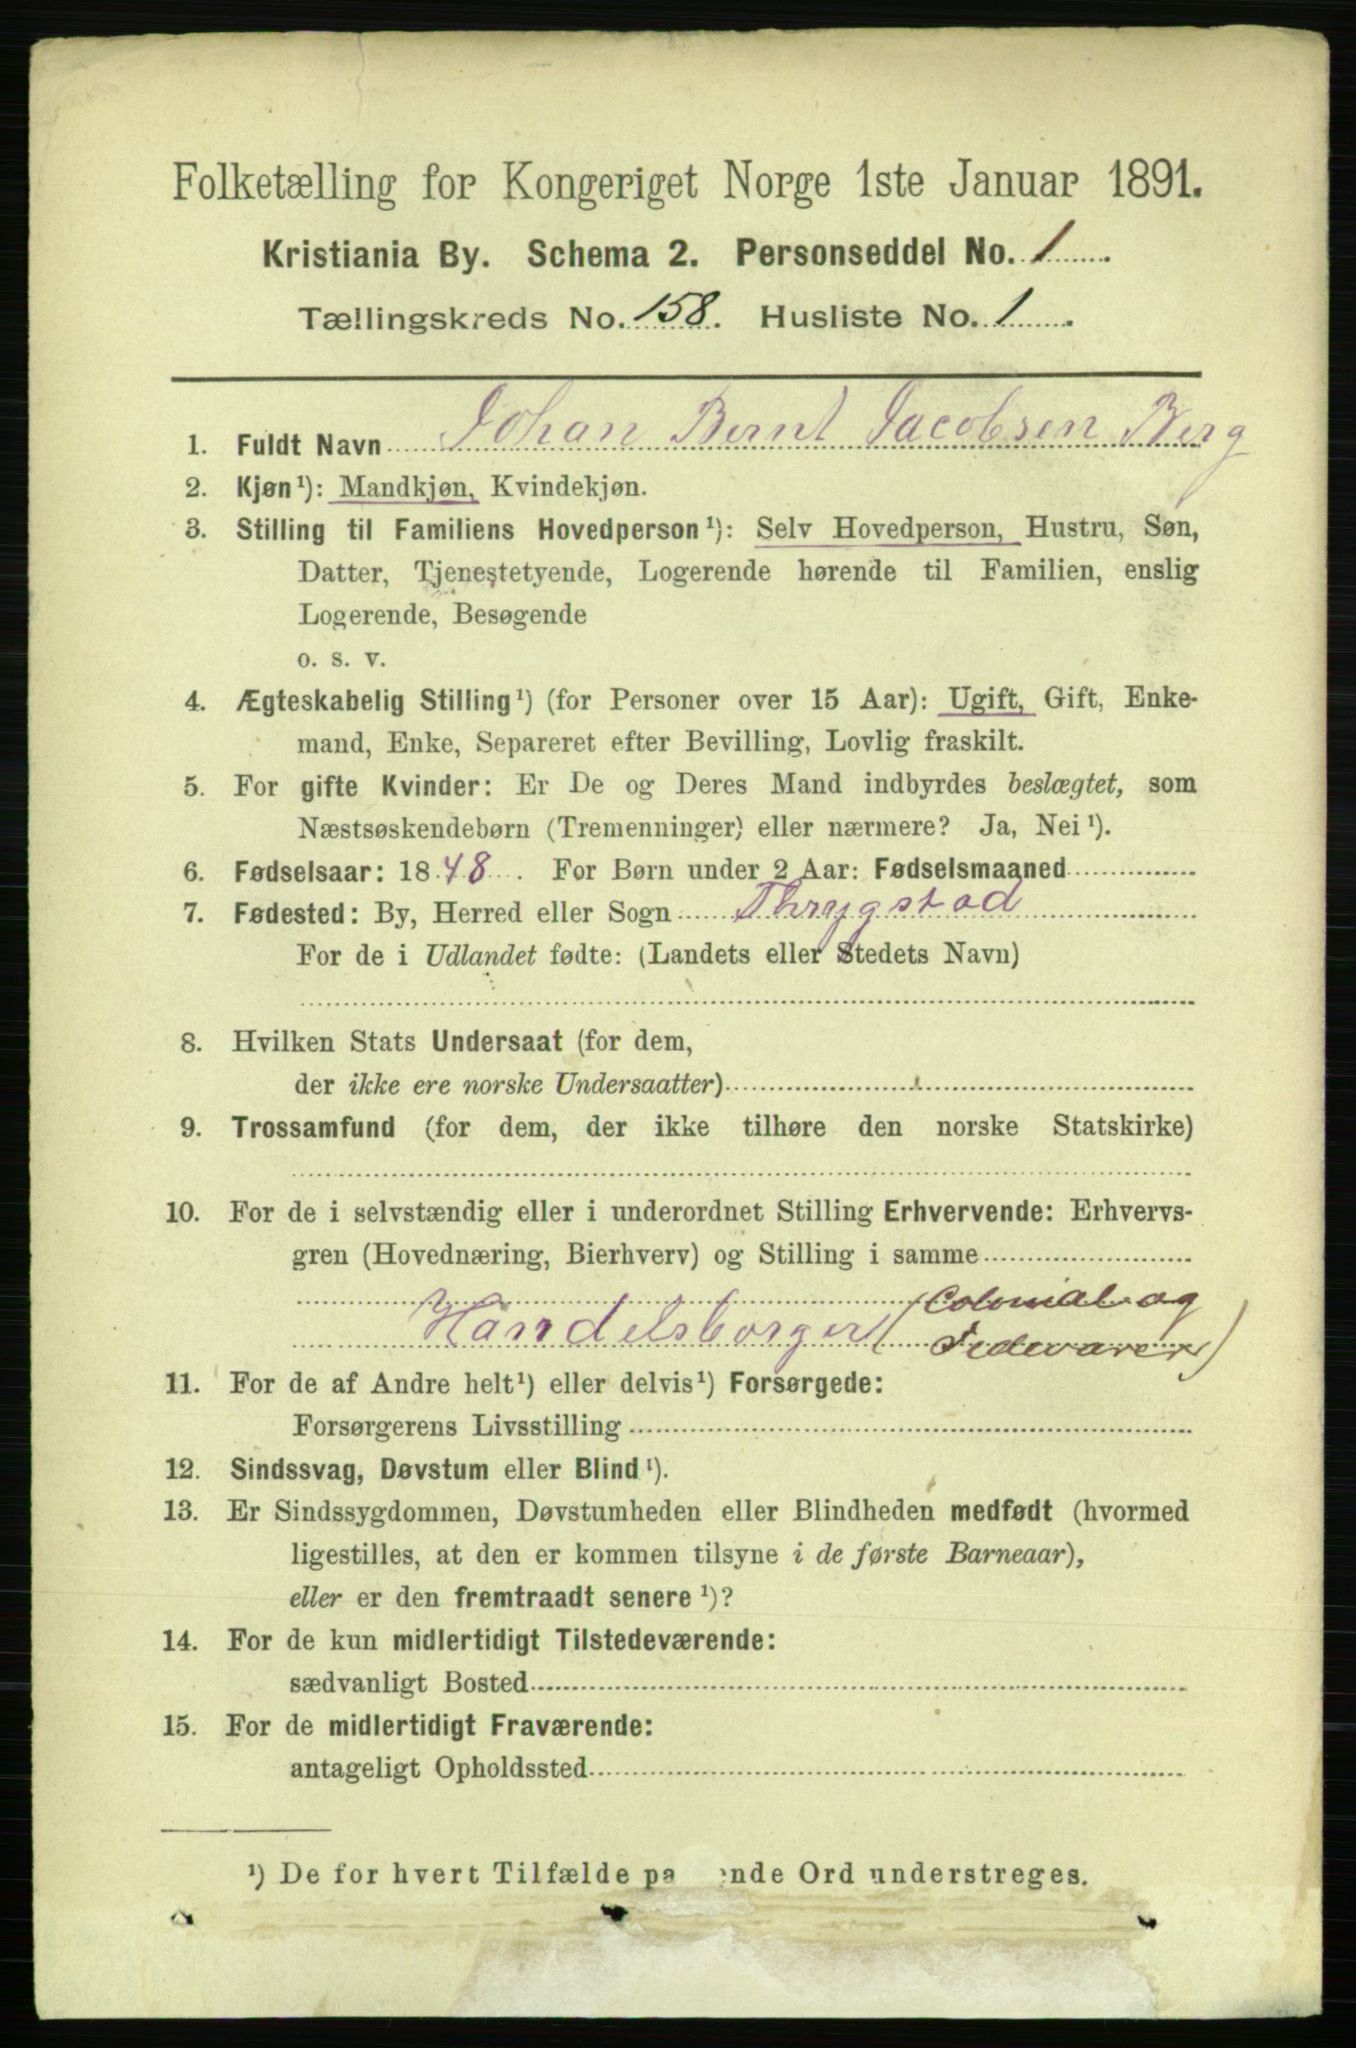 Folketælling for Kongeriget Norge 1ste Januar 1891.
Kristiania By. Schema 2. Personseddel No. 1
Tællingskreds No. 158. Husliste No. 1.
1. Fuldt Navn Johan Bernt Jacobsen Berg
2. Kjøn¹): Mandkjøn, Kvindekjøn.
3. Stilling til Familiens Hovedperson¹): Selv Hovedperson, Hustru, Søn,
Datter, Tjenestetyende, Logerende hørende til Familien, enslig
Logerende, Besøgende
o. s. v.
4. Ægteskabelig Stilling¹) (for Personer over 15 Aar): Ugift, Gift, Enke-
mand, Enke, Separeret efter Bevilling, Lovlig fraskilt.
5. For gifte Kvinder: Er De og Deres Mand indbyrdes beslægtet, som
Næstsøskendebørn (Tremenninger) eller nærmere? Ja, Nei¹).
6. Fødselsaar: 1848. For Børn under 2 Aar: Fødselsmaaned
7. Fødested: By, Herred eller Sogn Thrygstad
For de i Udlandet fødte: (Landets eller Stedets Navn)
8. Hvilken Stats Undersaat (for dem,
der ikke ere norske Undersaatter)
9. Trossamfund (for dem, der ikke tilhøre den norske Statskirke)
10. For de i selvstændig eller i underordnet Stilling Erhvervende: Erhvervs-
gren (Hovednæring, Bierhverv) og Stilling i samme
Handelsborger (Colonial og
Fedevarer)
11. For de af Andre helt¹) eller delvis¹) Forsørgede:
Forsørgerens Livsstilling
12. Sindssvag, Døvstum eller Blind¹).
13. Er Sindssygdommen, Døvstumheden eller Blindheden medfødt (hvormed
ligestilles, at den er kommen tilsyne i de første Barneaar),
eller er den fremtraadt senere¹)?
14. For de kun midlertidigt Tilstedeværende:
sædvanligt Bosted
15. For de midlertidigt Fraværende:
antageligt Opholdssted
¹) De for hvert Tilfælde pa ende Ord understreges.